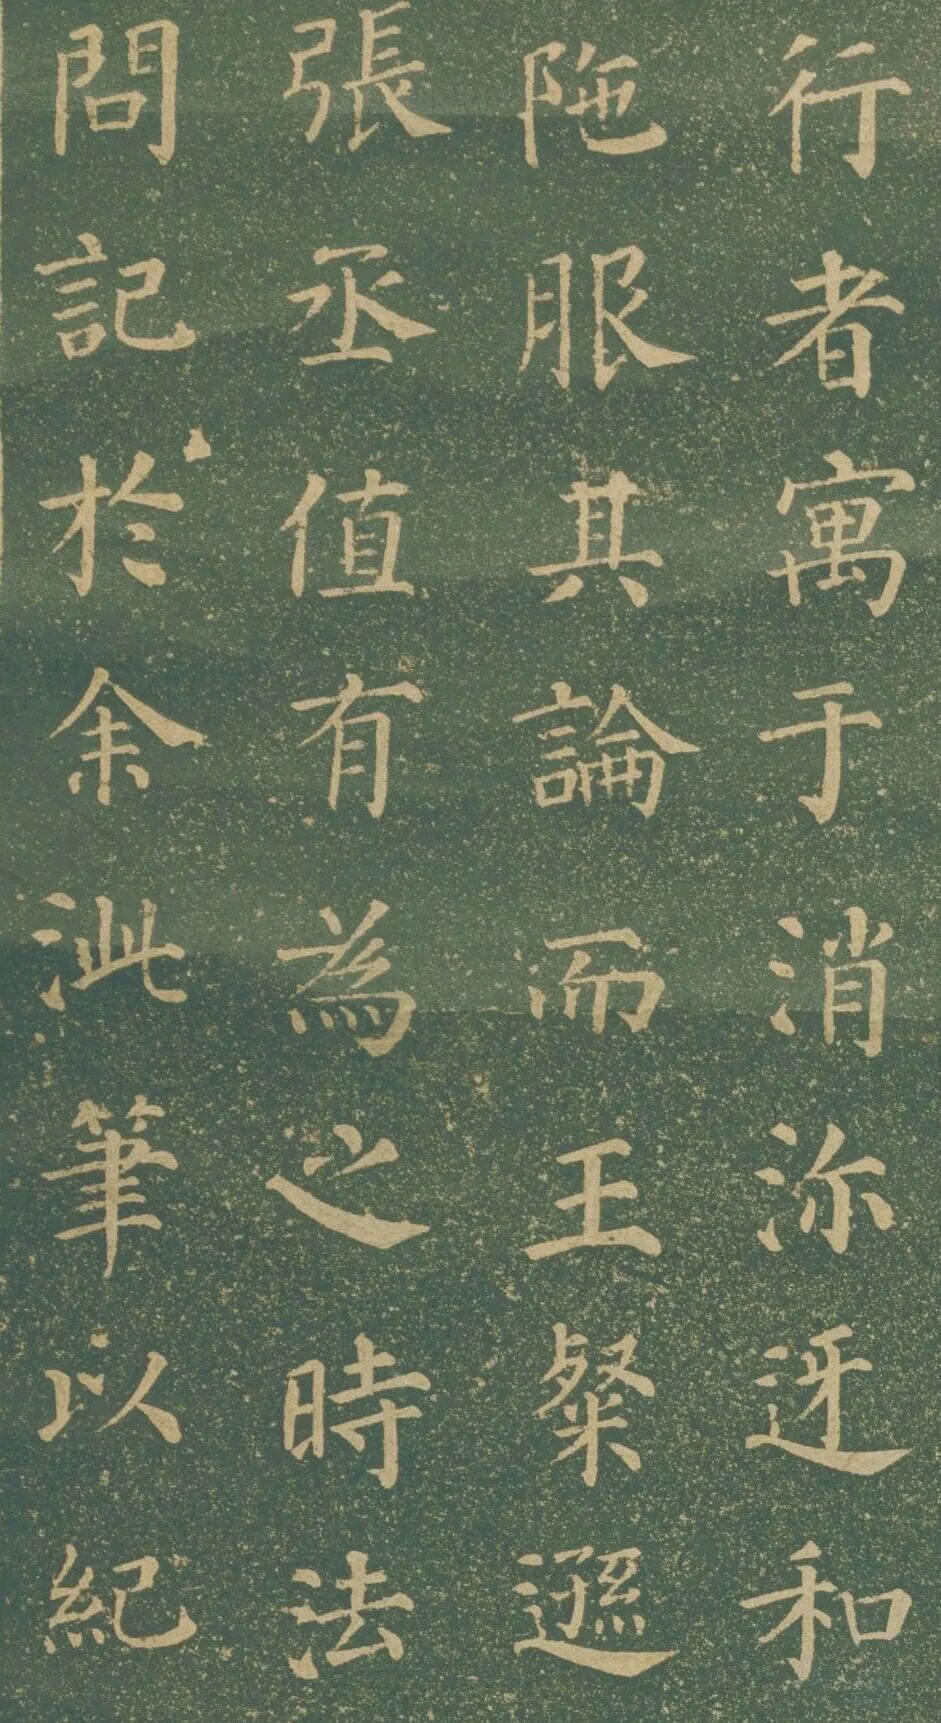 行者寓于消沵迓和
陁服其論而王粲遜
張丞值有為之時法
問記於余泚筆以紀